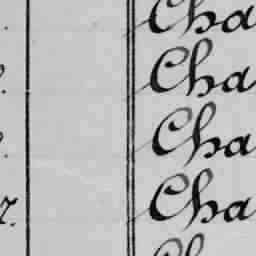 Cha
Cha
Cha
Cha